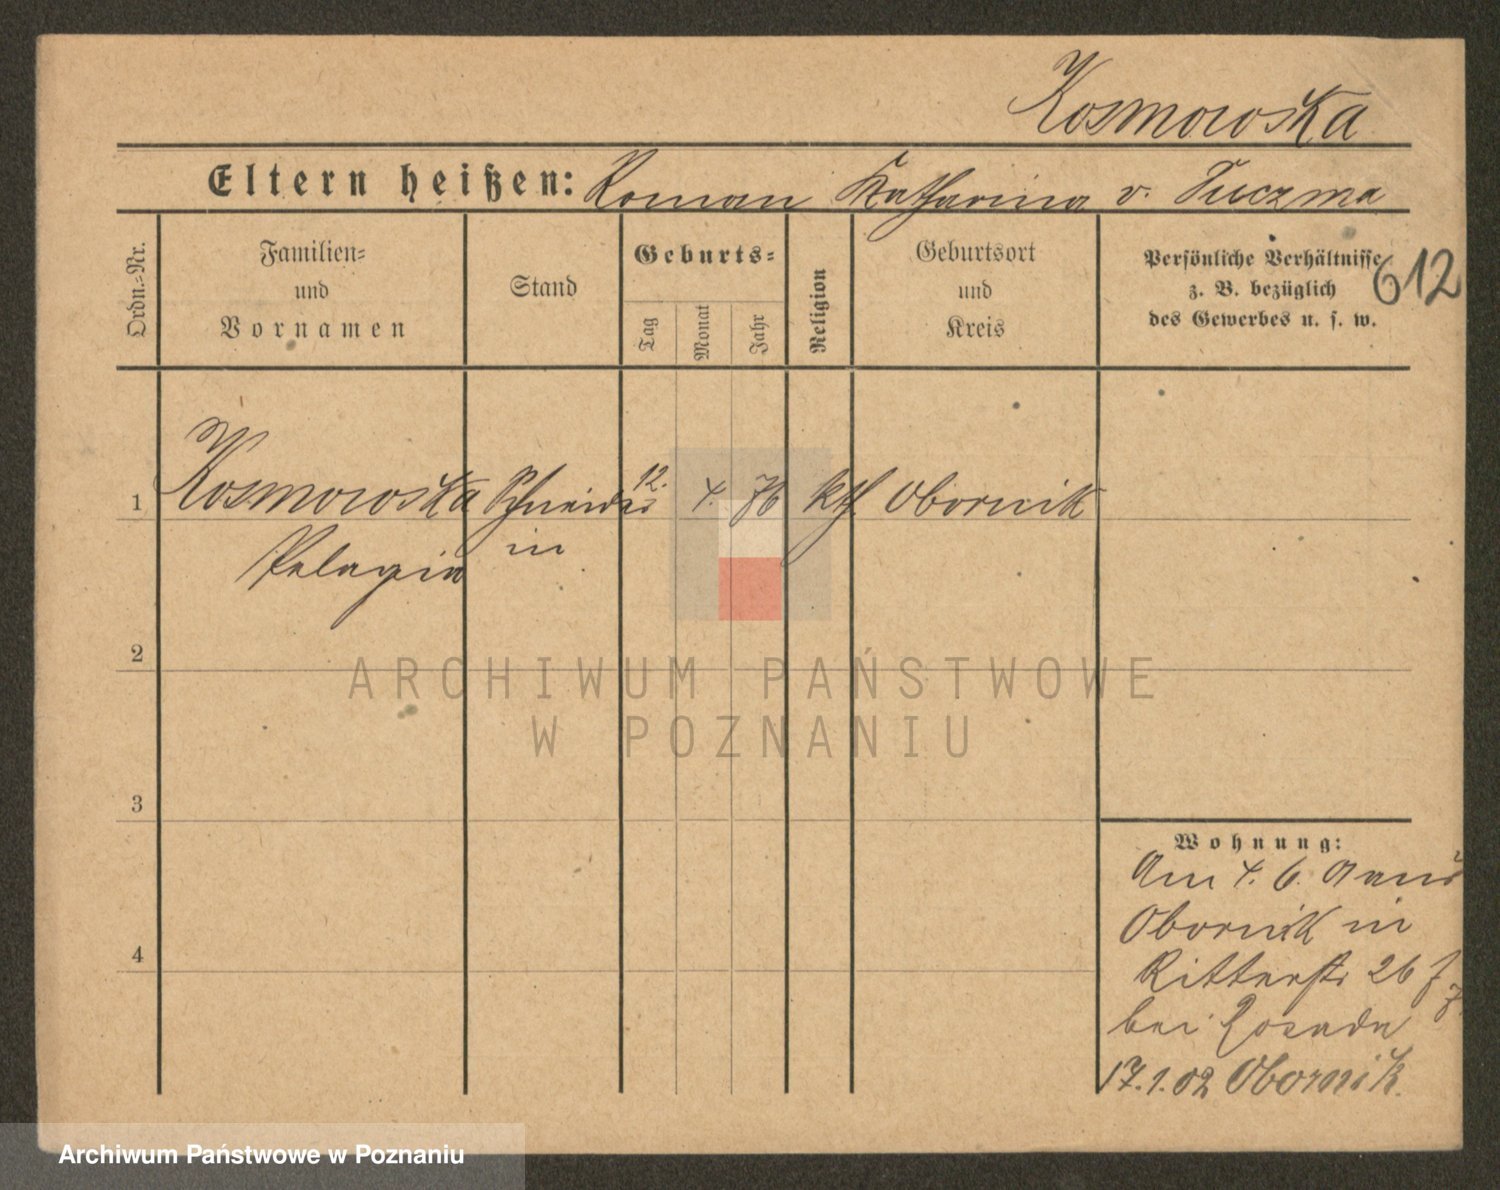 Kosmowska
Eltern heißen: Roman Katharina v. Tuczma
Ordn.-Nr.
Familien-
und
Vornamen
Stand
Geburts-
Tag
Monat
Jahr
Religion
Geburtsort
und
Kreis
Persönliche Verhältnisse
z. B. bezüglich
des Gewerbes u. s. w.
612
1 Kosmowska Schneider 12. 4. 76 kth. Obornik
Pelagia in
2
ARCHIWUM PAŃSTWOWE
W POZNANIU
3
Wohnung:
Am 4. 6. aus
Obornik in
4
Ritterstr 26
bei
17.1.02 Obornik.
Archiwum Państwowe w Poznaniu